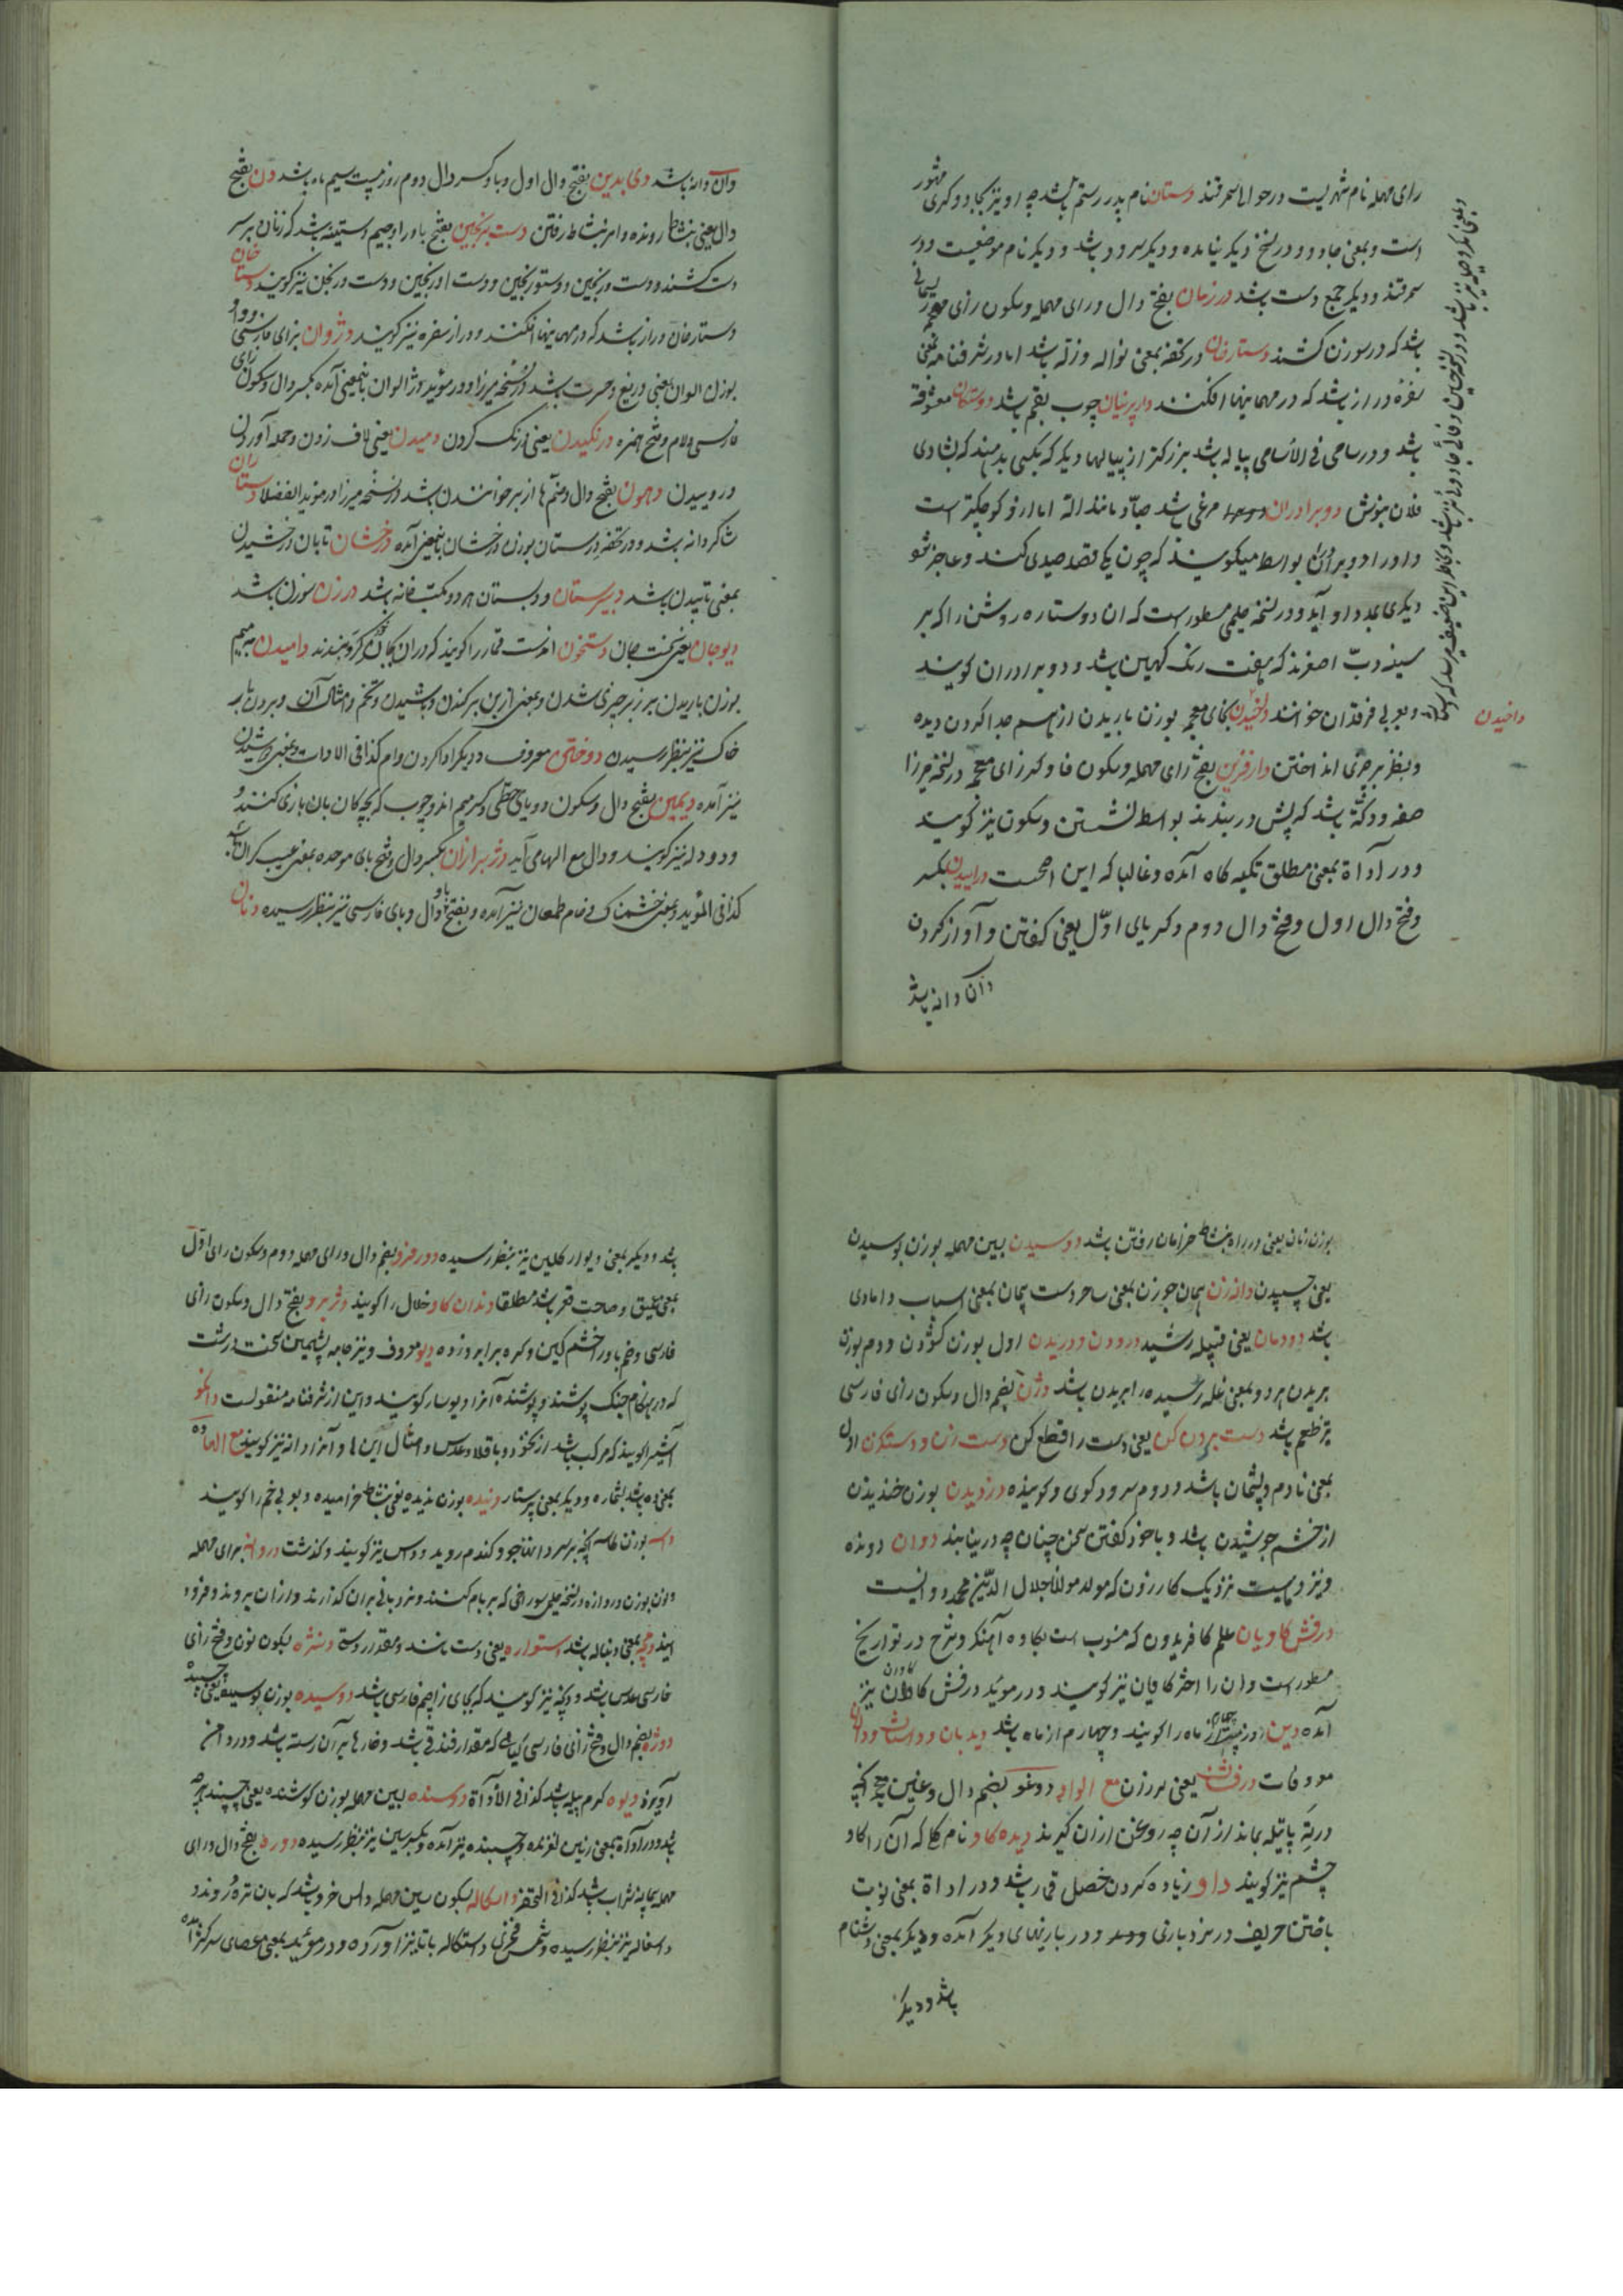 رای مهمله نام شهریست در حوالی سمرقند دستان نام پدر رستم باشد چه او نیز بجادوگری مشهور
است و بمعنی جادو و در نسخ دیگر نیامده و دیگر سرود باشد و دیگر نام موضعیست در
سمرقند و دیگر جمع دست باشد درزمان بفتح دال و رای مهمله و سکون زای معجمه ریسمانی
باشد که در سوزن کشند دستارخان در تحفه بمعنی نواله و زله باشد اما در شرفنامه بمعنی
سفره دراز باشد که در مهمانیها افکنند دارپرنیان چوب بقم باشد دوستکان معشوقه
باشد و در سامی فی الاسامی پیاله باشد بزرکتر از پیالها دیگر که بکسی بدهند که بشادی
فلان بنوش دوبرادران مرغی باشد صیاد مانند اله اما ازو کوچکتر است
و او را دوبرادران بواسطه میکویند که چون یکی قصد صیدی کند و عاجز شود
دیگری بمدد او آید و در نسخه حلیمی مسطور است که آن دو ستاره روشن را که بر
سینه دب اصغرند که هفت رنگ کهین باشد دوبرادران کویند
و بعربی فرقدان خوانند دخیدن بخای معجمه بوزن باریدن از هم جدا کردن دیده
و بنظر بر چیزی انداختن دارفزین بفتح رای مهمله و سکون فا و کسر زای معجمه در نسخه میرزا
صفه و دکه باشد که پیش در بندند بواسطه نشستن و ستون نیز کویند
و در اداة بمعنی مطلق تکیه کاه آمده و غالبا که این اصحست دراییدن بکسر
و فتح دال اول و فتح دال دوم و کسر یای اول یعنی کفتن و آواز کردن
دان دانه باشد
داخیدن
دان دانه باشد دی بدین بفتح دال اول و با و کسر دال دوم روز بیست سیم ماه باشد دن بفتح
دال یعنی بنشاط رونده و امر بنشاط رفتن دست برنجین بفتح با و را و جیم دستینه باشد که زنان بر سر
دست کشند و دست ورنجین و دستورنجین و دست اورنجین و دست ورنجن نیز کویند دستارخان
دستارخان دراز باشد که در مهمانیها افکنند و دراز سفره نیز کویند دژوان بزای فارسی و واو
بوزن الوان بمعنی دریغ و حسرت باشد در نسخه میرزا و در مؤید دژالوان باینمعنی آمده بکسر دال و سکون زای
فارسی و لام و فتح همزه درنکیدن یعنی درنک کردن دمیدن یعنی لاف زدن و حمله آوردن
و روییدن دهمون بفتح دال و ضم ها از بر خواندن باشد در نسخه میرزا و در مؤید الفضلا دستاران
شاکردانه باشد و در تحفه دستان بوزن درخشان باینمعنی آمده درخشان تابان درخشیدن
بمعنی تابیدن باشد دبیرستان و دبستان هر دو مکتب خانه باشد درزن سوزن باشد
دیوجان یعنی سخت جان دستخون آخرست قمار را کویند که در آن بجان خود کرو بندند دامیدن بمیم
بوزن باریدن بر زبر چیزی شدن و بمعنی از بن برکندن و پاشیدن و تخم و امثال آن و بردن باد
خاک نیز بنظر رسیدن دوختن معروف و دیگر ادا کردن وام کذا فی الادات و بمعنی دوشیدن
نیز آمده دیمبن بفتح دال و سکون دو یای حطی و کسر میم اند و چوب که بچه کان بآن بازی کنند و
و دودله نیز کویند و دال مع الها می آید دژبرازان بکسر دال و فتح بای موحده بمعنی عیب کران باشد
کذا فی المؤید و بمعنی خشمناک و خام طمعان نیز آمده و بفتح دال و بای فارسی نیز بنظر رسیده دنان
بوزن زنان یعنی در راه بنشاط خرامان رفتن باشد دوسیدن بسین مهمله بوزن بوسیدن
یعنی چسپیدن دانه زن همان جوزن بمعنی ساحر دست پیمان بمعنی اسباب دامادی
باشد دودمان یعنی قبیله رشید درودن و دریدن اول بوزن کشودن و دوم بوزن
بریدن هر دو بمعنی غله رسیده را بریدن باشد دژن بضم دال و سکون زای فارسی
تیزطعم باشد دست بردن کن یعنی دست را قطع کن دست زن و دستکزن اول
بمعنی نادم و پشیمان باشد و دوم سرودکوی و کوینده دزدیدن بوزن خندیدن
از خشم جوشیدن باشد و با خود کفتن سخن چنان چه در نیابند دوان دونده
و نیز دهیست نزدیک کازرون که مولد مولانا جلال الدین محمد دوانیست
درفش کاویان علم کافریدون که منسوب است بکاوه آهنکر و شرح در تواریخ
مسطور است و آن را اختر کاویان نیز کویند و در مؤید درفش کاوان نیز
آمده دین روز بیست چهارم از ماه را کویند و چهارم از ماه باشد دیدبان و داستان و دان
معروفات درفشان یعنی لرزان مع الواو دوغو بضم دال و غین معجمه آنچه
در ته پاتیله بماند از آن چه روغن از آن کیرند دیده کاو نام کلی که آن را کاو
چشم نیز کویند داو زیاده کردن خصل قمار باشد و در اداة بمعنی نوبت
باختن حریف در نردبازی و در بازیهای دیگر آمده و دیگر بمعنی دشنام
باشد و دیگر
باشد و دیگر بمعنی دیوار کلین نیز بنظر رسیده دورفزو بضم دال و رای مهمله دوم و سکون رای اول
بمعنی عمیق و صاحب قعر باشد مطلقا دندان کاو خلال را کویند دژبرو بفتح دال و سکون زای
فارسی و ضم با و را خشمکین و کره بر ابرو زده دیو معروف و نیز جامه پشمین سخت درشت
که در هنکام جنک پوشند و پوشنده آنرا دیوسار کویند و این از شرفنامه منقولست دانکو
آشیرا کویند که مرکب باشد از نخود و باقلا و عدس و امثال اینها و آنرا دانه نیز کویند مع الها ده
بمعنی ده باشد بشماره و دیگر بمعنی پرستار دنیده بوزن ندیده یعنی بنشاط خرامیده و بعربی خم را کویند
داسه بوزن کاسه آنچه بر سر دانها جو و کندم روید و داس نیز کویند و کذشت دروانه برای مهمله
و نون بوزن دروازه در نسخه حلیمی سوراخی که بر بام کنند و نردبانی بر آن کذارند و از آن بر روند و فرود
آیند دمچه بمعنی دنباله باشد دستواره یعنی دست مانند و مقدار دست دنژه بسکون نون و فتح زای
فارسی عدس باشد و دنچه نیز کویند که بجای زا جیم فارسی باشد دوسیده بوزن بوسیده یعنی چسپیده
دوژه بضم دال و فتح زای فارسی کیاهی که مقدار فندقی باشد و خارها بر آن رسته باشد و در دامن
آویزد دیوه کرم پیله باشد کذا فی الاداة دوسنده بسین مهمله بوزن کوشنده یعنی چسپنده بر چیزی
باشد و در اداة بمعنی زمین لغزنده و چسبنده نیز آمده و بکسر سین نیز بنظر رسیده دوره بفتح دال و رای
مهمله پیمانه شراب باشد کذا فی التحفه داسکاله بسکون سین مهمله داس خرد باشد که بآن تره دروند و
داسغاله نیز بنظر رسیده و شمس فخری داستکاله با تا نیز آورده و در مؤید بمعنی عصای سرکژ آمده